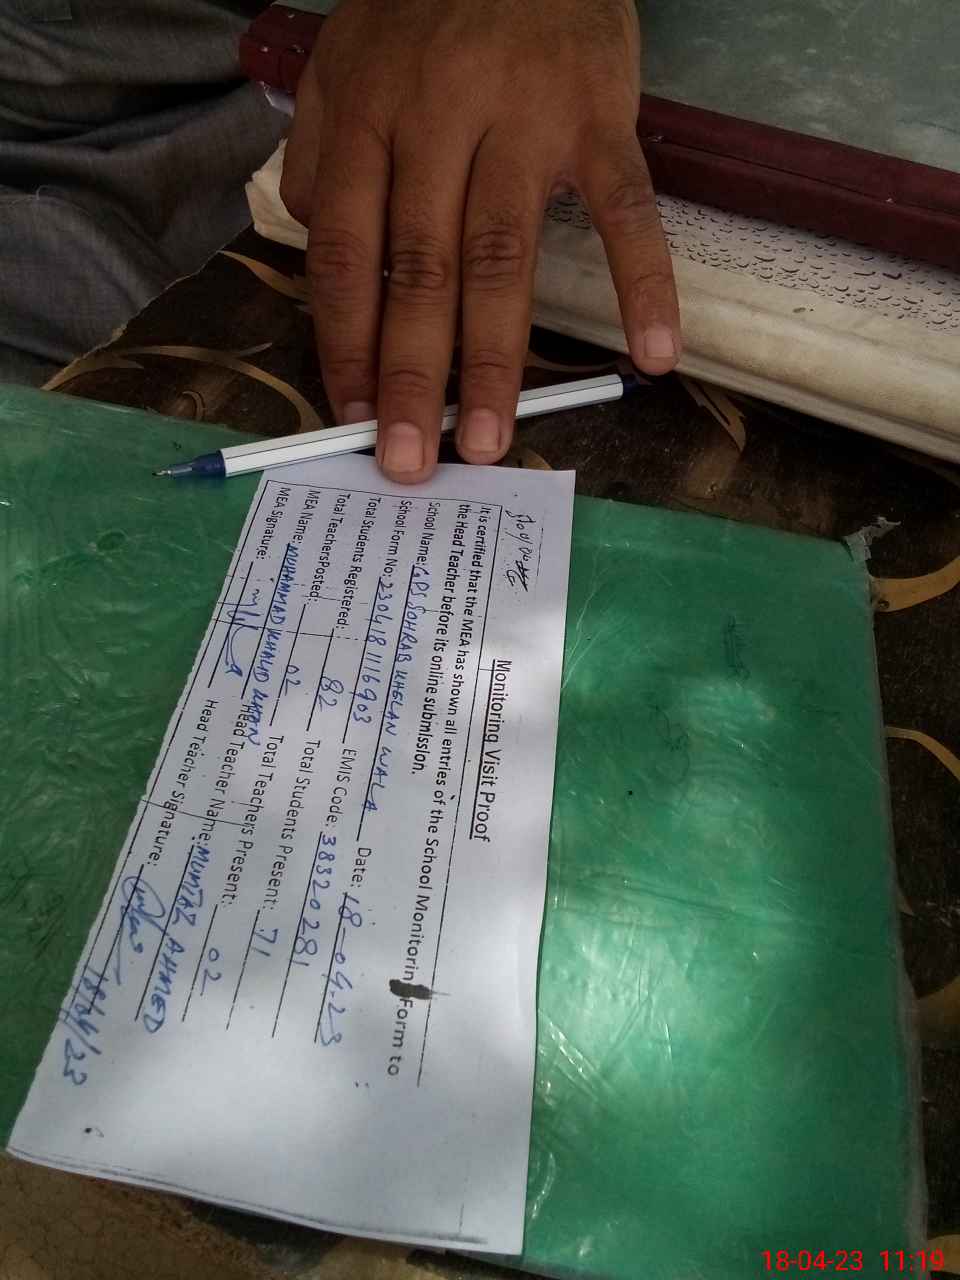 Monitoring Visit Proof
It is certified that the MEA has shown all entries of the School Monitorin Form to
the Head Teacher before its online submission.
School Name: GPS SOHRAB KHELAN WALA Date: 18-04-23
School Form No: 2304181116903 EMIS Code: 38320281
Total Students Registered: 82 Total Students Present: 71
Total TeachersPosted: 02 Total Teachers Present: 02
MEA Name: MUHAMMAD KHALID KHAN Head Teacher Name: MUMTAZ AHMED
MEA Signature: Head Teacher Signature:
18/04/23
18-04-23 11:19